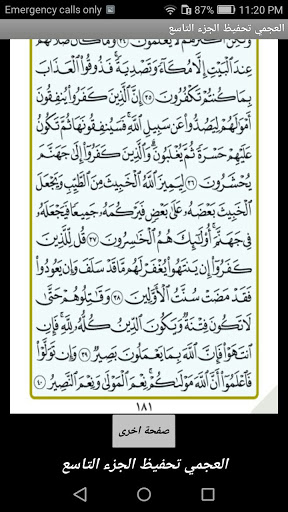 Emergency calls only 87% 11:20 PM
العجمي تحفيظ الجزء التاسع
وَلَٰكِنَّ أَكْثَرَهُمْ لَا يَعْلَمُونَ ٣٤ وَمَا كَانَ صَلَاتُهُمْ
عِندَ ٱلْبَيْتِ إِلَّا مُكَآءً وَتَصْدِيَةً ۚ فَذُوقُوا۟ ٱلْعَذَابَ
بِمَا كُنتُمْ تَكْفُرُونَ ٣٥ إِنَّ ٱلَّذِينَ كَفَرُوا۟ يُنفِقُونَ
أَمْوَٰلَهُمْ لِيَصُدُّوا۟ عَن سَبِيلِ ٱللَّهِ ۚ فَسَيُنفِقُونَهَا ثُمَّ تَكُونُ
عَلَيْهِمْ حَسْرَةً ثُمَّ يُغْلَبُونَ ۗ وَٱلَّذِينَ كَفَرُوٓا۟ إِلَىٰ جَهَنَّمَ
يُحْشَرُونَ ٣٦ لِيَمِيزَ ٱللَّهُ ٱلْخَبِيثَ مِنَ ٱلطَّيِّبِ وَيَجْعَلَ
ٱلْخَبِيثَ بَعْضَهُۥ عَلَىٰ بَعْضٍ فَيَرْكُمَهُۥ جَمِيعًا فَيَجْعَلَهُۥ
فِى جَهَنَّمَ ۚ أُو۟لَٰٓئِكَ هُمُ ٱلْخَٰسِرُونَ ٣٧ قُل لِّلَّذِينَ
كَفَرُوٓا۟ إِن يَنتَهُوا۟ يُغْفَرْ لَهُم مَّا قَدْ سَلَفَ وَإِن يَعُودُوا۟
فَقَدْ مَضَتْ سُنَّتُ ٱلْأَوَّلِينَ ٣٨ وَقَٰتِلُوهُمْ حَتَّىٰ
لَا تَكُونَ فِتْنَةٌ وَيَكُونَ ٱلدِّينُ كُلُّهُۥ لِلَّهِ ۚ فَإِنِ
ٱنتَهَوْا۟ فَإِنَّ ٱللَّهَ بِمَا يَعْمَلُونَ بَصِيرٌ ٣٩ وَإِن تَوَلَّوْا۟
فَٱعْلَمُوٓا۟ أَنَّ ٱللَّهَ مَوْلَىٰكُمْ ۚ نِعْمَ ٱلْمَوْلَىٰ وَنِعْمَ ٱلنَّصِيرُ ٤٠
١٨١
صفحة اخرى
العجمي تحفيظ الجزء التاسع